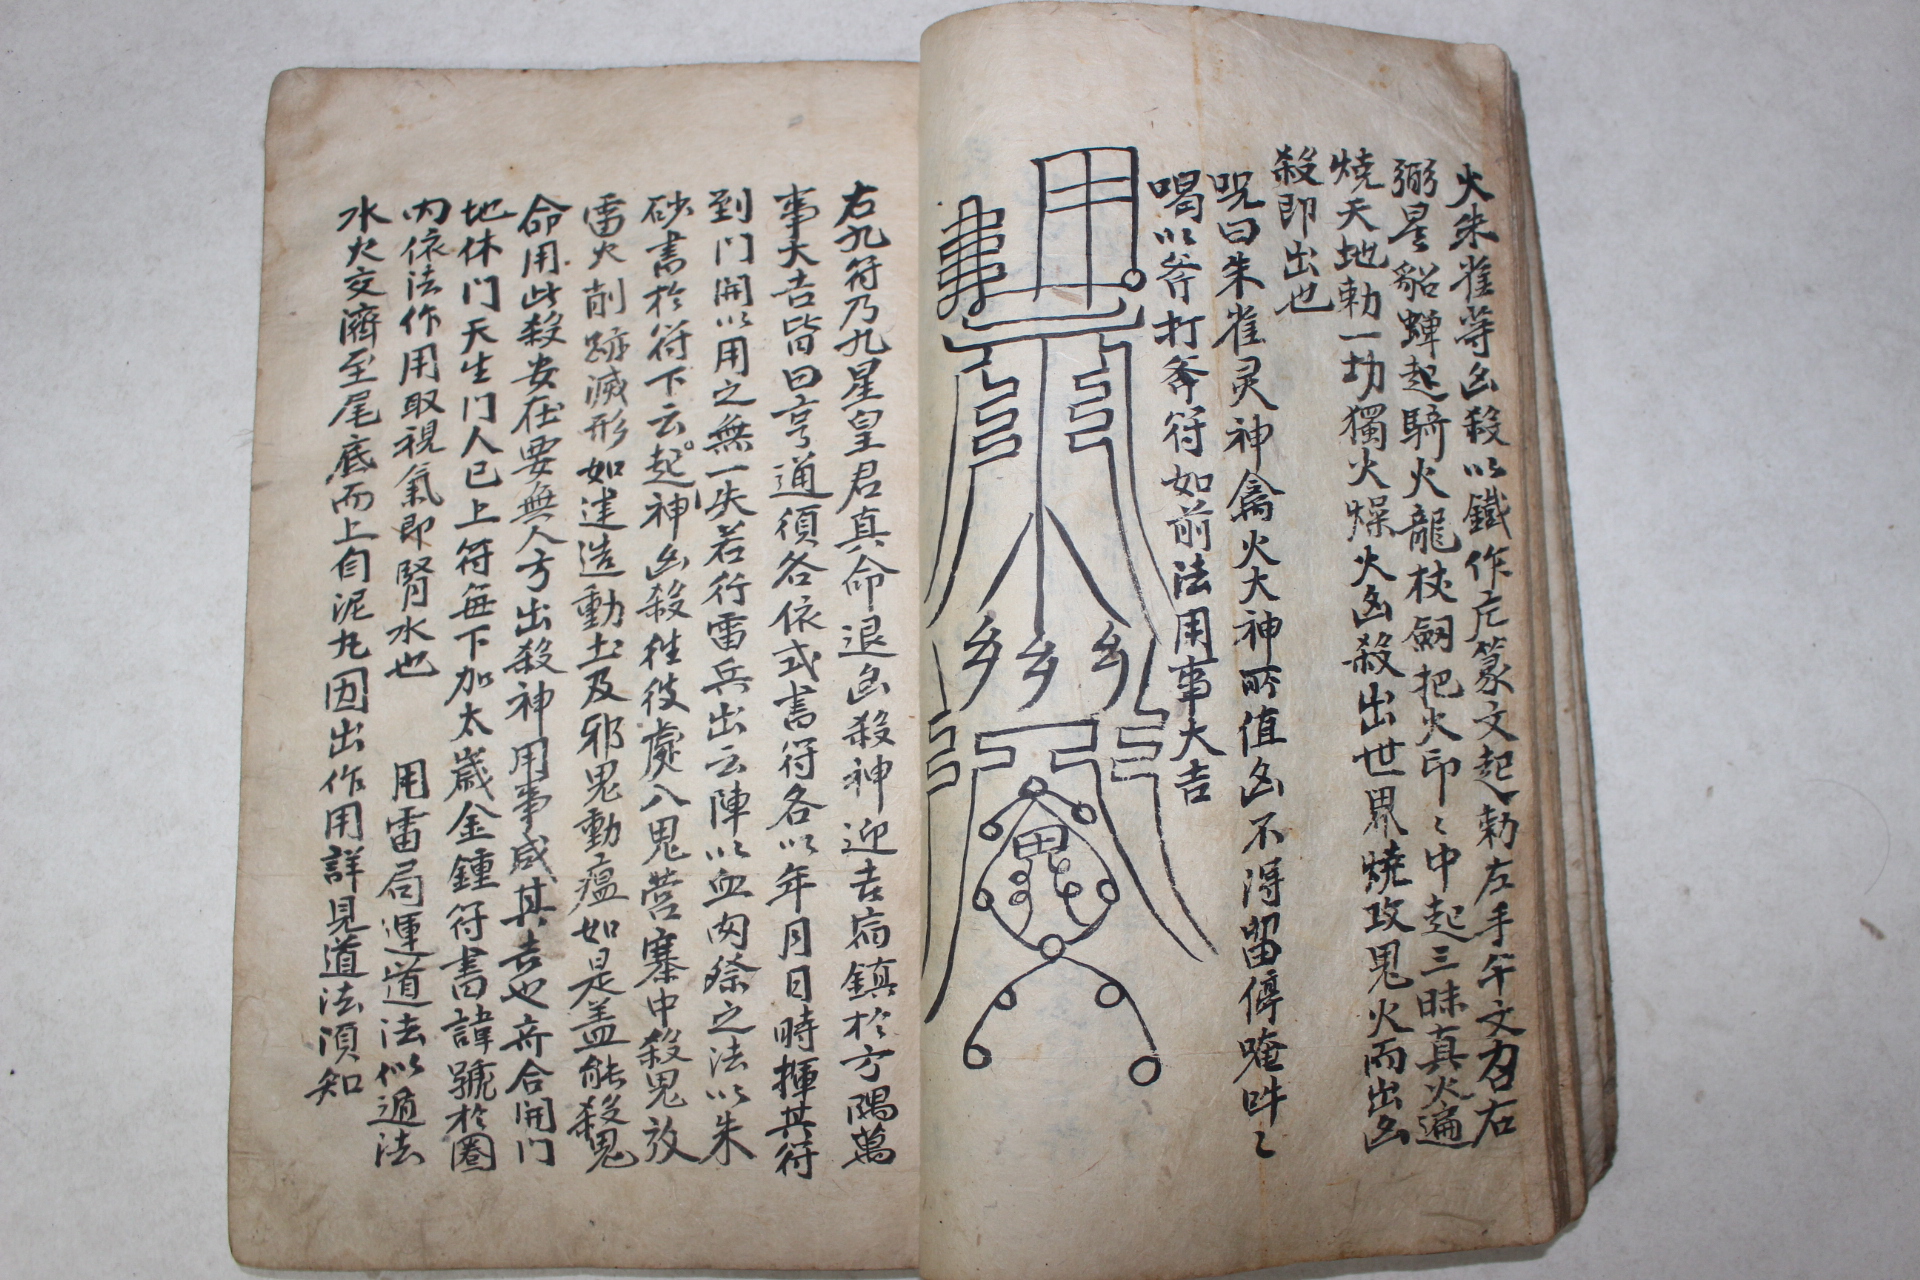 火朱雀等凶殺以鐵作庀篆文起勅左手年文召右
弼星貂蟬起騎火龍杖劒把火印〻中起三昧真火遍
燒天地勅一切獨火燥火凶殺出世界燒攻鬼火而出凶
殺即出也
呪曰朱雀灵神禽火大神所值凶不得留停唵吽〻
喝以斧打斧符如前法用事大吉
鬼
右九符乃九星皇君真命退凶殺神迎吉病鎮於方隅萬
事大吉皆曰亨通須各依式書符各以年月日時揮其符
到門開以用之無一失若行雷兵出云陣以血肉祭之法以朱
砂書於符下云起神凶殺徃彼處八鬼营寨中殺鬼放
雷火削跡滅形如建造動土及邪鬼動瘟如是盖能殺鬼
命用此殺安在要無人方出殺神用事咸其吉也奇合開門
地休門天生門人已上符每下加太歲金鍾符書諱號於圈
内依法作用取視氣即腎水也 用雷局運道法似遁法
水火交濟至尾底而上自泥丸因出作用詳見道法湏知